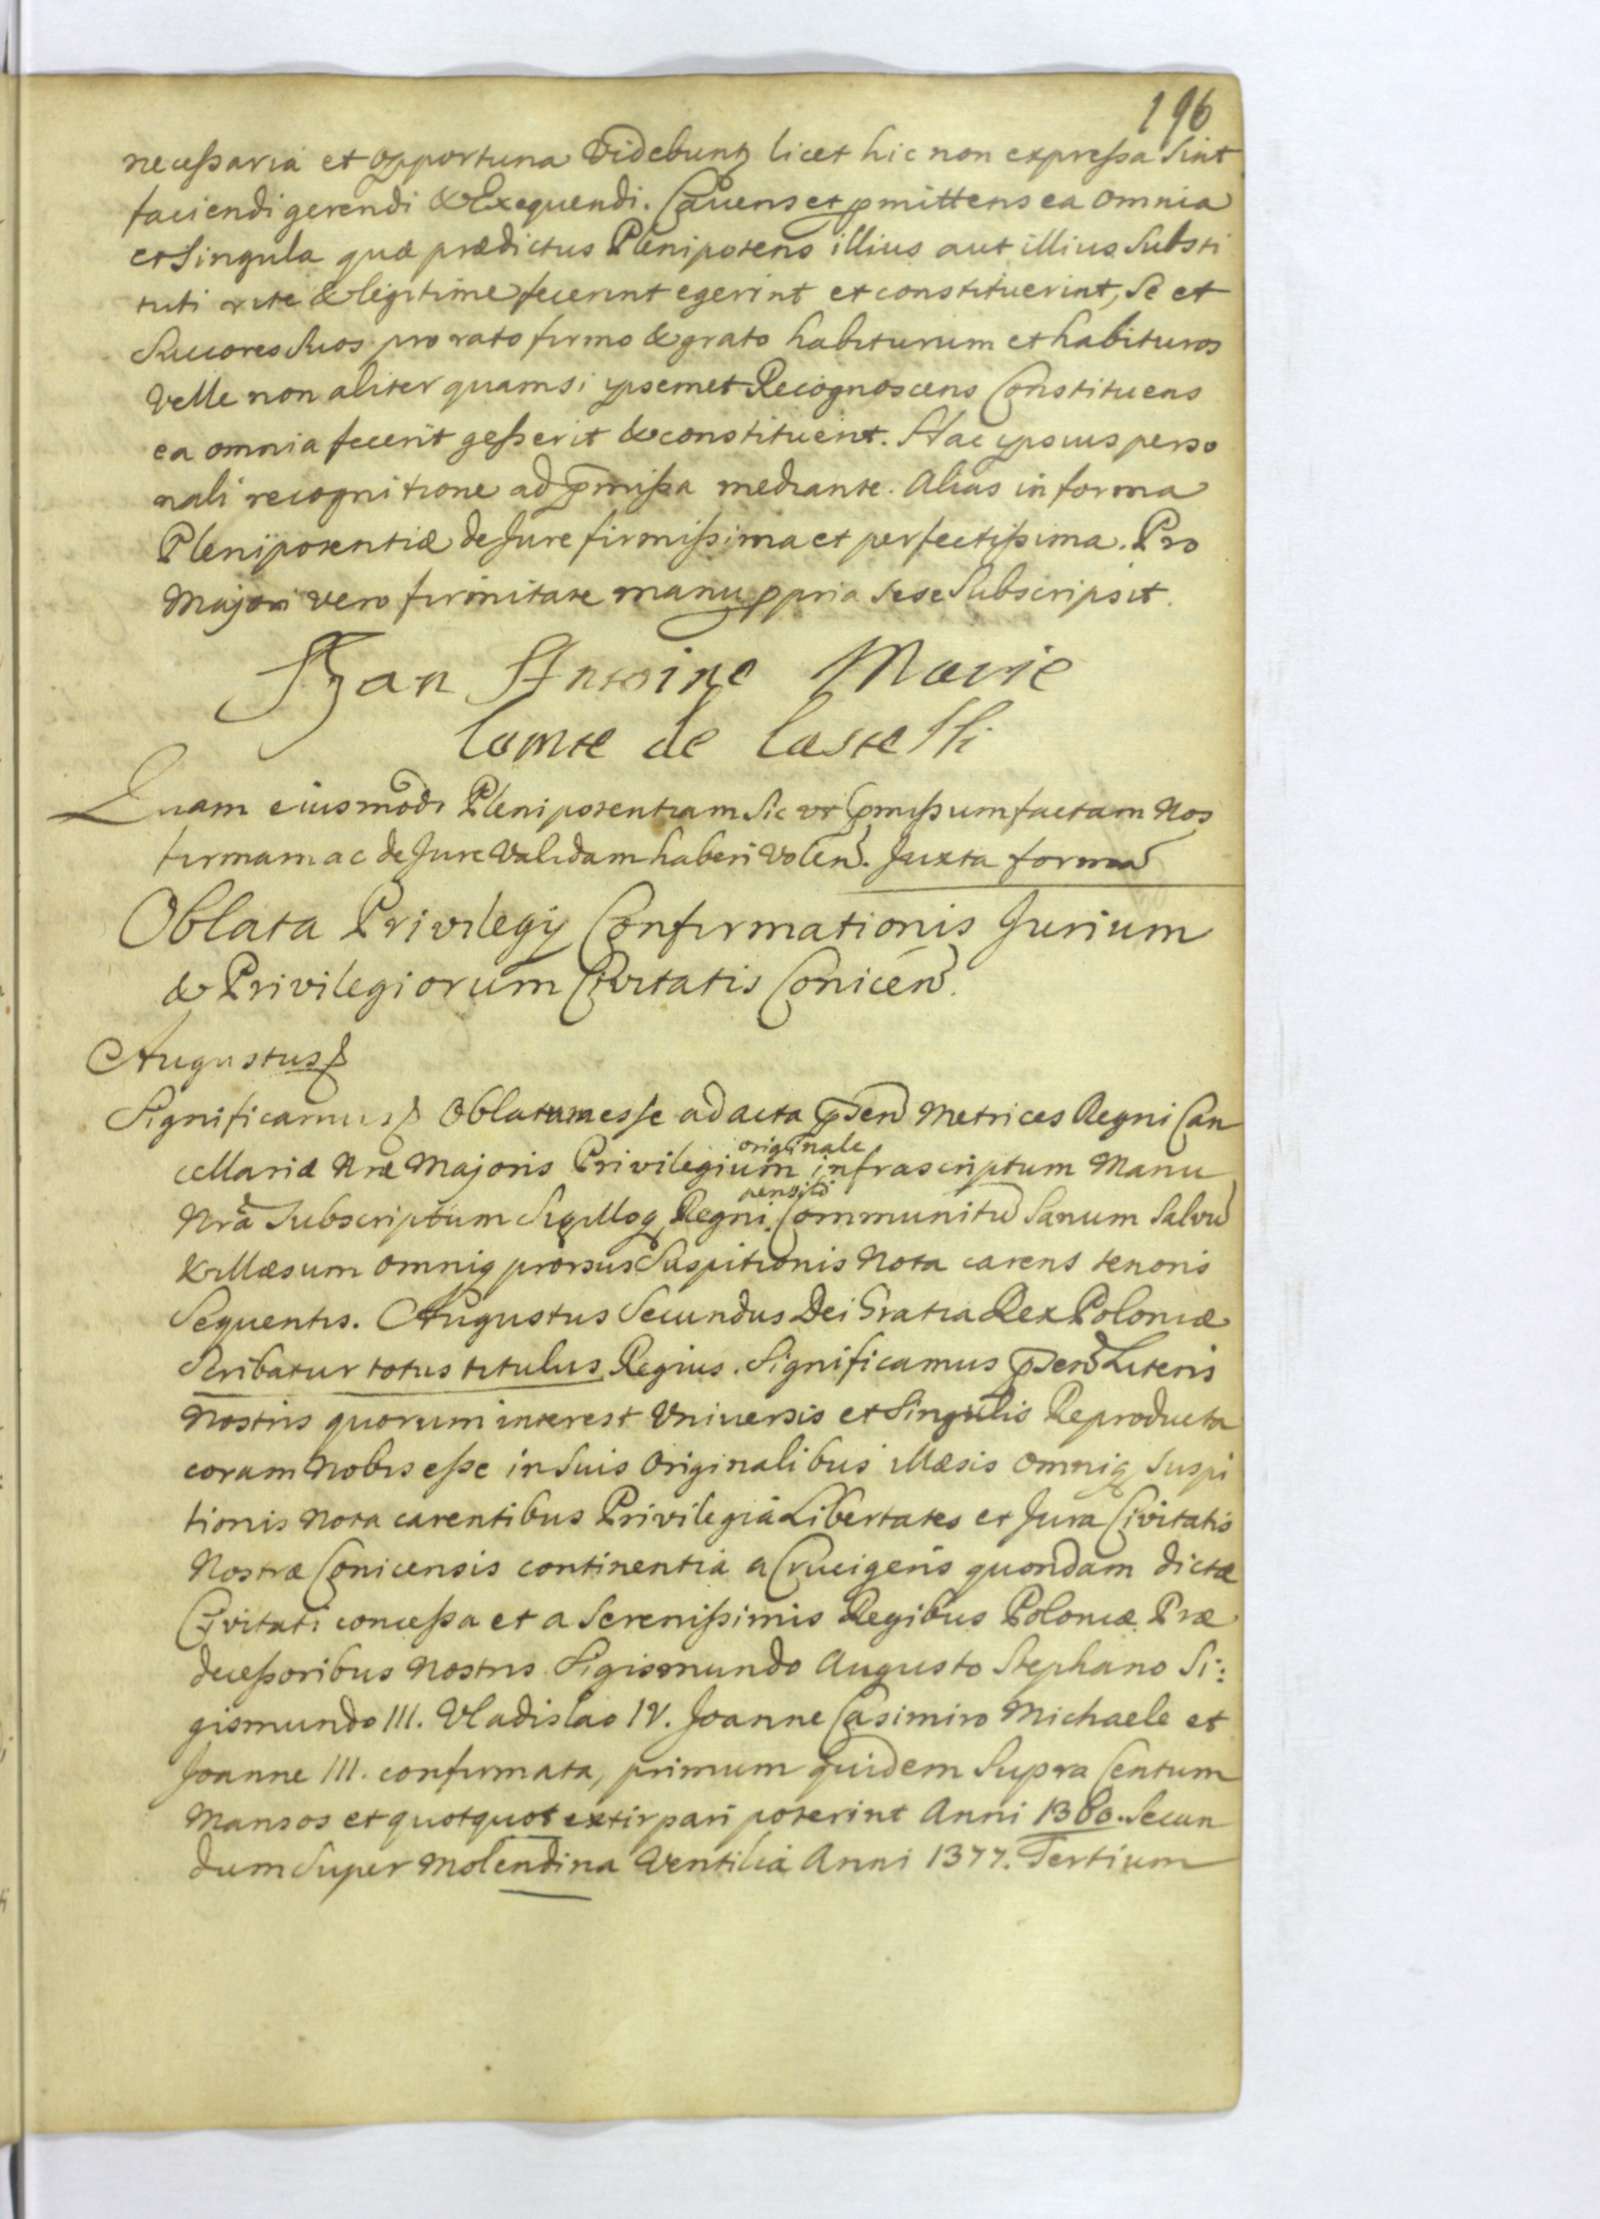 196
necessaria et opportuna Videbuntq licet hic non expressa Sint
faciendi gerendi & Exequendi. Cavens et pmittens ea omnia
et Singula quæ prædictus Plenipotens illius aut illius Substi
tuti rite & legitime fecerint egerint et constituerint, Se et
Successores Suos pro rato firmo & grato habiturum et habituros
Velle non aliter quam si ipsemet Recognoscens Constituens
ea omnia fecerit gesserit & constituerit. Hac ipsius perso
nali recognitione ad pmissa mediante. Alias in forma
Plenipotentiæ de Jure firmissima et perfectissima. Pro
Majori vero firmitate manu ppria Sese Subscripsit.
Jean Antoine Marie
Comte de Castelli
Quam eiusmodi Plenipotentiam Sic ut pmissum factam Nos
firmam ac de Jure Validam haberi Volen. Juxta forma
Oblata Privilegij Confirmationis Jurium
& Privilegiorum Civitatis Conicen.
Augustus
Significamus Oblatum esse ad acta psen Metrices Regni Can
cellariæ Nræ Majoris Privilegium originale infrascriptum Manu
Nra Subscriptum Sigilloq Regni pensili Communitu Sanum Salvu
& illæsum omniq prorsus Suspitionis Nota carens tenoris
Sequentis. Augustus Secundus Dei Gratia Rex Poloniæ
Scribatur totus titulus Regius. Significamus psen Literis
Nostris quorum interest Universis et Singulis Reproducta
coram Nobis esse in Suis Originalibus illæsis omniq Suspi
tionis Nota carentibus Privilegia Libertates et Jura Civitatis
Nostræ Conicensis continentia a Crucigeris quondam dictæ
Civitati concessa et a Serenissimis Regibus Poloniæ Præ
decessoribus Nostris Sigismundo Augusto Stephano Si:
gismundo III. Vladislao IV. Joanne Casimiro Michaele et
Joanne III. confirmata, primum quidem Supra Centum
Mansos et quotquot extirpari poterint Anni 1360. Secun
dum Super Molendina Ventilia Anni 1377. Tertium